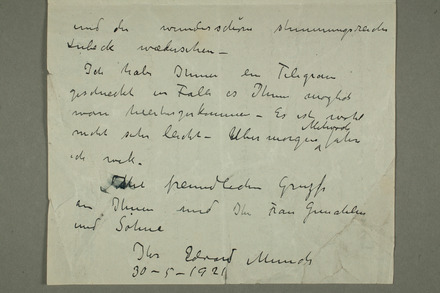 und das wunderschöne stimmungsreiche
Lübeck wiedersehen –
Ich habe Ihnen ein Telegram
geschückt im Falls es Ihnen möglich
wäre hierherzukommen – Es ist wohl
nicht sehr leicht – Übermorgen Mittwoch fahr
ich weck –
Mit freundlichen Gruss
an Ihnen und Ihr Frau Gemahlin
und Söhne
Ihr Edvard Munch
30–5–1921